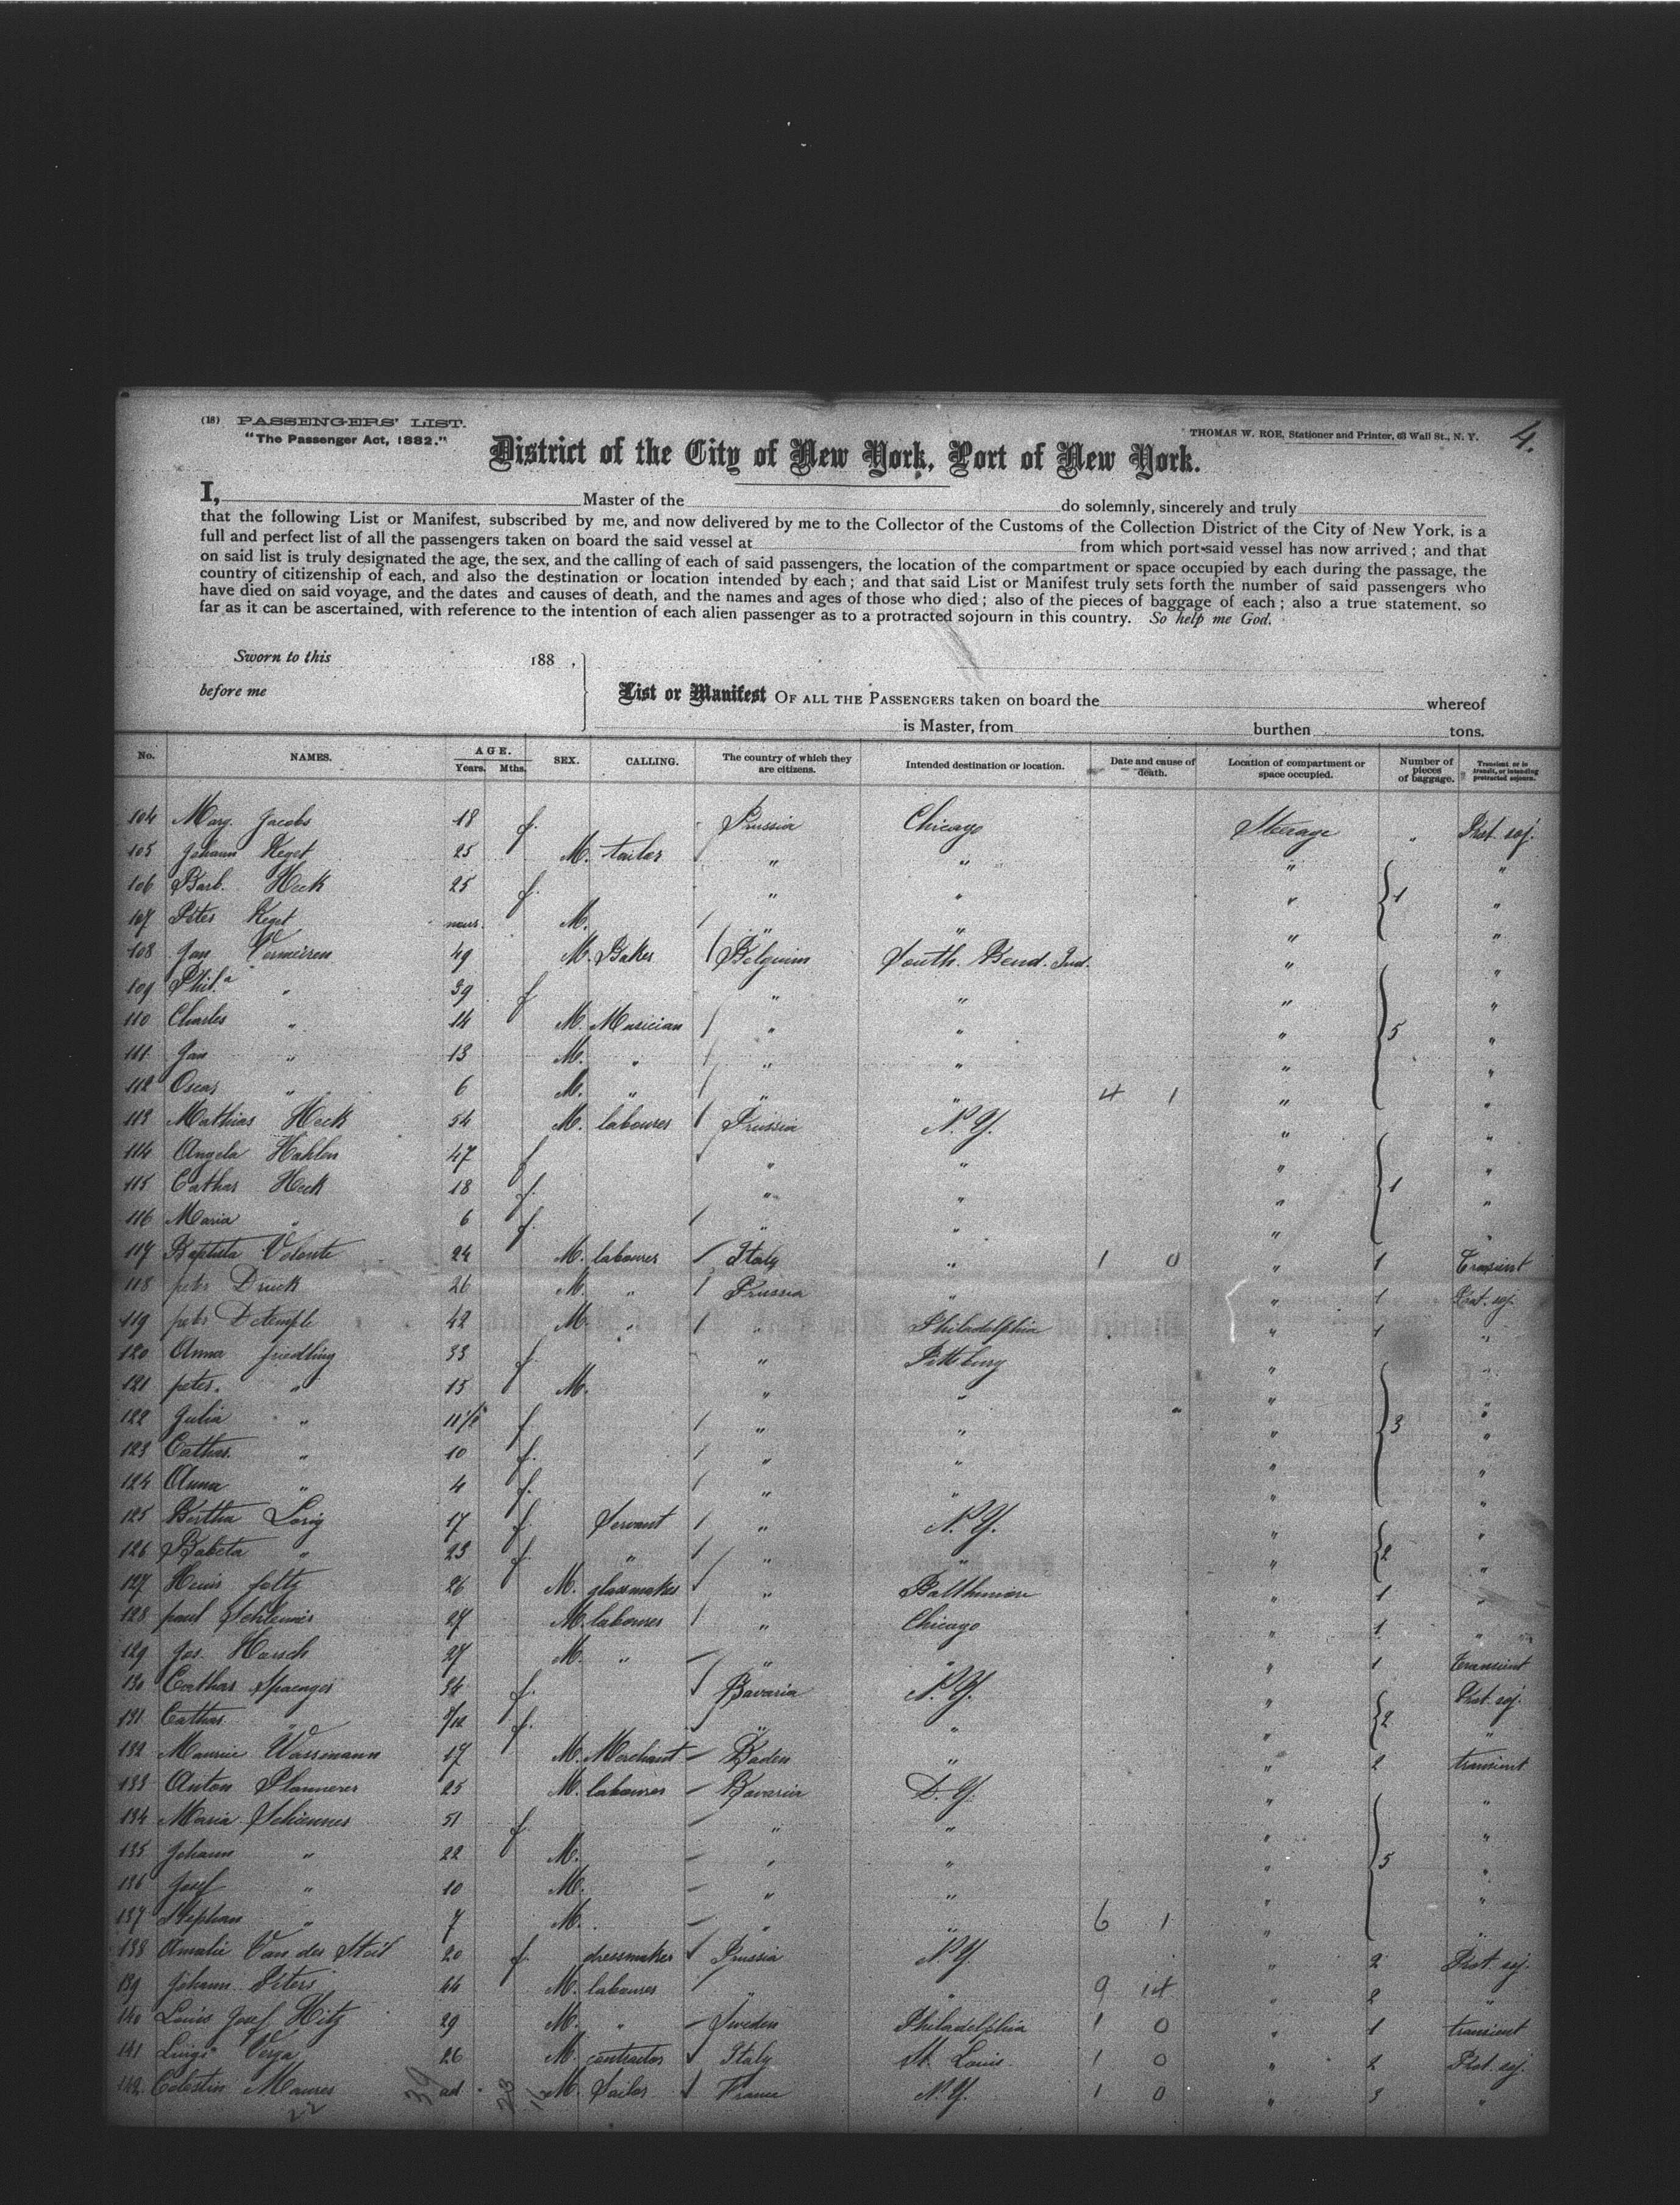 (18) PASSENGERS' LIST.
"The Passenger Act, 1882."
THOMAS W. ROE, Stationer and Printer, 63 Wall St., N. Y.
4.
District of the City of New York, Port of New York.
I, Master of the do solemnly, sincerely and truly
that the following List or Manifest, subscribed by me, and now delivered by me to the Collector of the Customs of the Collection District of the City of New York, is a
full and perfect list of all the passengers taken on board the said vessel at from which port said vessel has now arrived; and that
on said list is truly designated the age, the sex, and the calling of each of said passengers, the location of the compartment or space occupied by each during the passage, the
country of citizenship of each, and also the destination or location intended by each; and that said List or Manifest truly sets forth the number of said passengers who
have died on said voyage, and the dates and causes of death, and the names and ages of those who died; also of the pieces of baggage of each; also a true statement, so
far as it can be ascertained, with reference to the intention of each alien passenger as to a protracted sojourn in this country. So help me God.
Sworn to this 188 ,
before me
List or Manifest OF ALL THE PASSENGERS taken on board the whereof
is Master, from burthen tons.
No. NAMES. AGE. Years. Mths. SEX. CALLING. The country of which they are citizens. Intended destination or location. Date and cause of death. Location of compartment or space occupied. Number of pieces of baggage. Transient or in transit, or intending protracted sojourn.
104 Marg. Jacobs 18 f. Prussia Chicago Steerage " Prot. soj.
105 Johann Keget 25 M. tailor " " " "
106 Barb. Heck 25 f. " " " 1 "
107 Peter Keget M. " " " "
108 Jan Vermeiren 49 M. Baker Belgium South Bend. Ind. " "
109 Phil.a " 39 f " " " "
110 Charles " 14 M. Musician " " " 5 "
111 Jan " 13 M. " " " " "
112 Oscar " 6 M. " " " 4 1 " "
113 Mathias Heck 54 M. labourer Prussia N. Y. " "
114 Angela Hahlen 47 f " " " "
115 Cathar Heck 18 f. " " " 1 "
116 Maria " 6 f. " " " "
117 Baptista Volonte 24 M. labourer Italy " 1 0 " 1 Transient
118 peter Druck 26 M. " Prussia " " 1 Prot. soj.
119 peter Detemple 42 M. " " Philadelphia " 1 "
120 Anna friedling 33 f " Pittsburg " "
121 peter. " 15 M. " " "
122 Julia " 11 f. " " " 3 "
123 Cathar. " 10 f. " " " "
124 Anna " 4 f. " " " "
125 Bertha Lorig 17 f. Servant " N. Y. " "
126 Babeta " 23 f. " " " " 2 "
127 foltz 26 M. glassmaker " Balthimore " 1 "
128 paul 27 M. labourer " Chicago " 1 "
129 Jos. Harsch 27 M. " " " " 1 transient
130 Cathar Spaenger 34 f. Bavaria N. Y. " Prot. soj.
131 Cathar. " /12 f. " " " 2 "
132 Maurice Wassmann 17 M. Merchant Baden " " 2 transient
133 Anton Plannerer 25 M. labourer Bavaria N. Y. " "
134 Maria 51 f. " " " "
135 Johann " 22 M. " " " 5 "
136 Josef " 10 M. " " " "
137 Stephan " 7 M. " " 6 1 " "
138 Amalie Van der 20 f. dressmaker Prussia N. Y. " 2 Prot. soj.
139 Johann Peters 44 M. labourer " " 9 14 " 2 "
140 Louis Josef Hitz 29 M. " Sweden Philadelphia 1 0 " 1 transient
141 Luigi Verga 26 M. contractor Italy St. Louis 1 0 " 2 Prot. soj.
142 Celestin Maurer ad M. Sailor France N. Y. 1 0 " 3 "
22 39 23